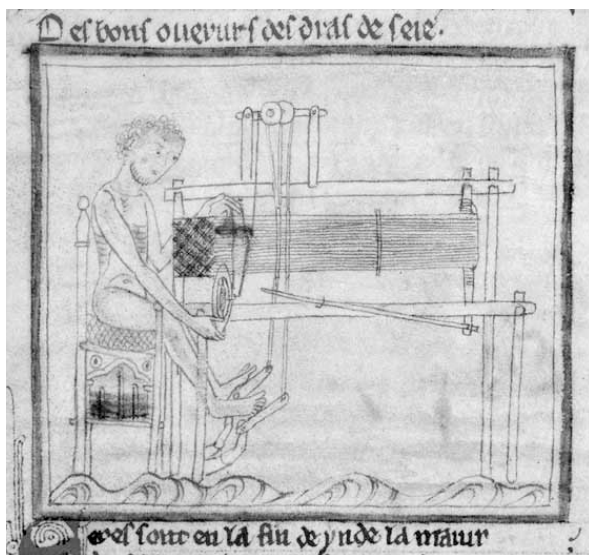 Des bons ouerurs des dras de seie.
eres sont en la fin de ynde la maiur